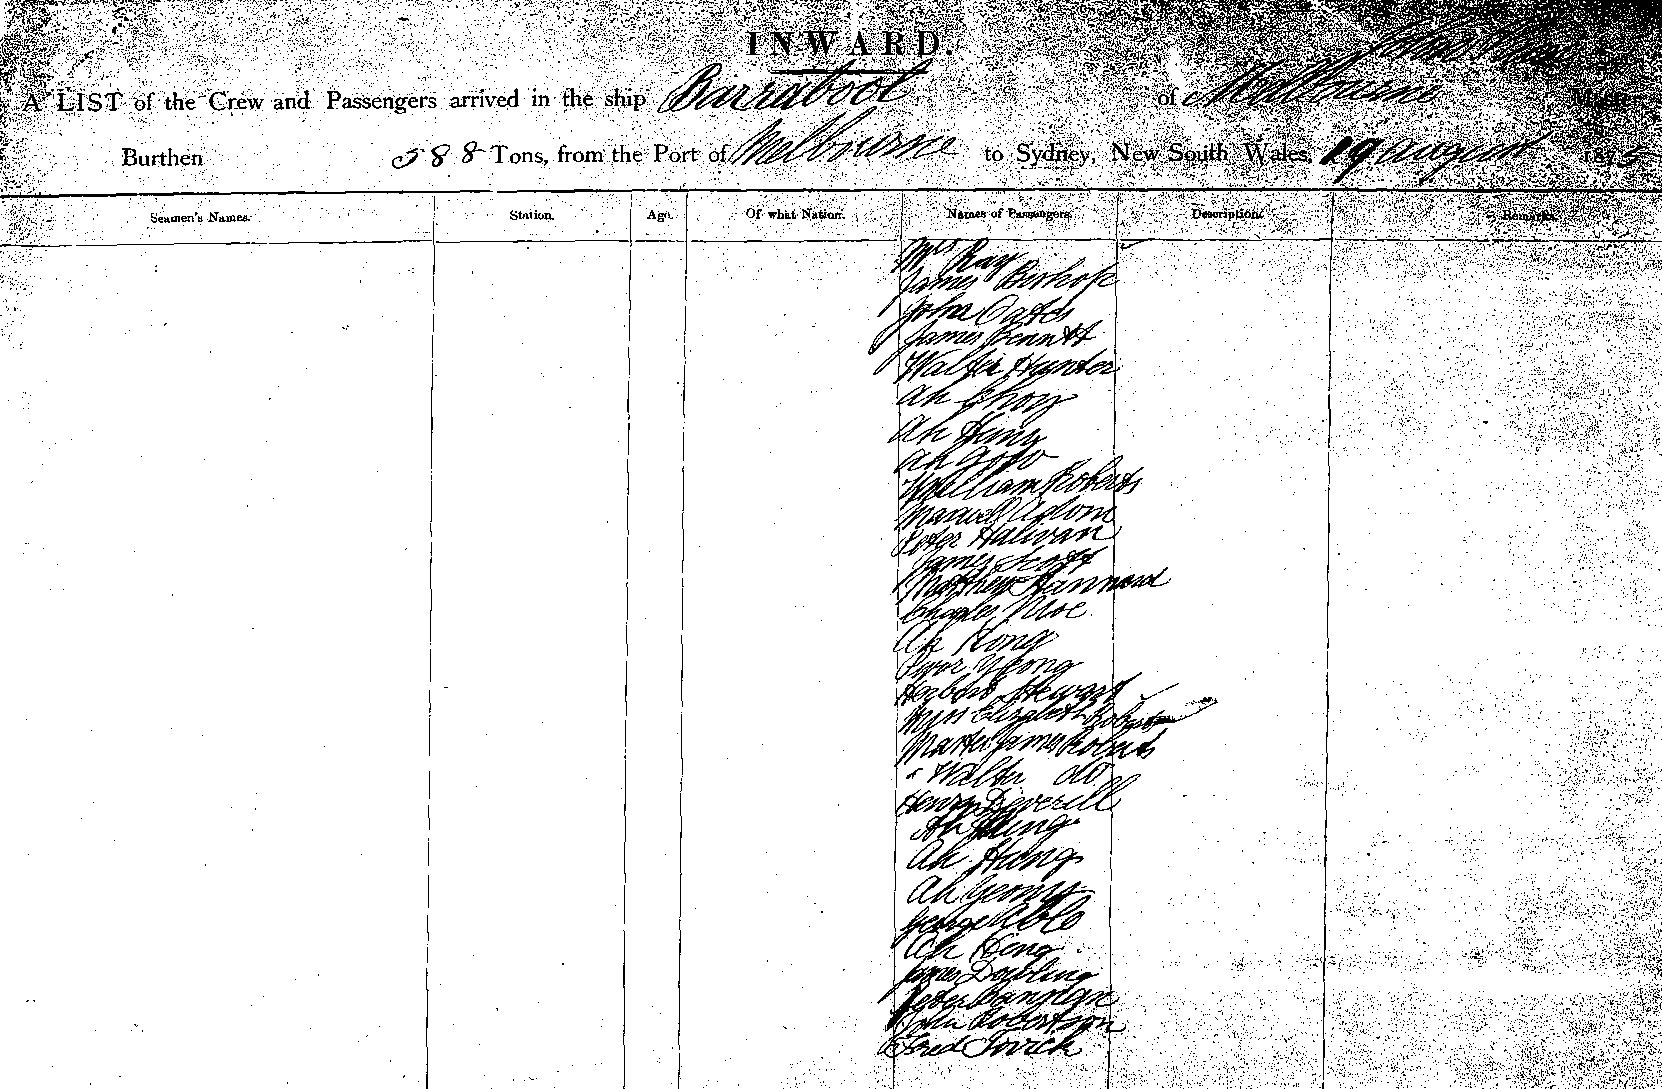 INWARD.
A LIST of the Crew and Passengers arrived in the ship Barrabool of Melbourne
Burthen 588 Tons, from the Port of Melbourne to Sydney, New South Wales, 19 August 187
Seamen's Names. Station. Age. Of what Nation. Names of Passengers. Description. Remarks.
Mrs Ray
James Bishop
John Oates
James Bennett
Walter Hunter
Ah Choy
Ah Hing
Ah
William Roberts
Peter Halivan
James Scott
Matthew Hannard
Charles Moe
Ah Kong
Herbert Stewart
Miss Elizabeth Roberts
Master James Roberts
" Walter do
Henry Deverill
Ah Hing
Ah Hung
Ah Yeong
George Able
Ah Heng
James Dabling
Peter
John Robertson
Fred Tovick